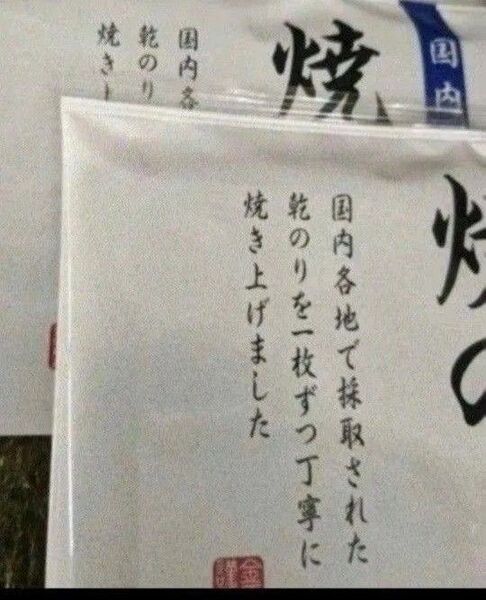 国内
焼
国内各
乾のり
焼き上
焼の
国内各地で採取された
乾のりを一枚ずつ丁寧に
焼き上げました